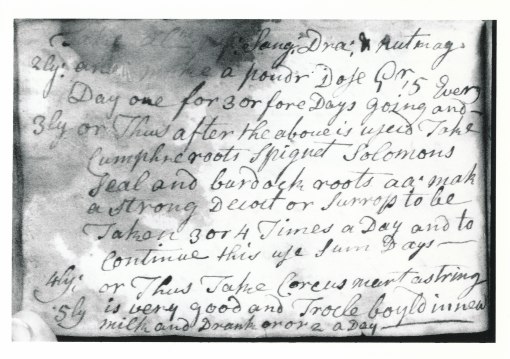 Sang: Dra: & nutmag
2ly: a poudr Dose Gr: 5 Every
Day one for 3 or fore Days going and
3ly or Thus after the above is useid Take
Cumphre roots Spignet Solomons
Seal and burdock roots aa: mak
a strong Decoct or Surrop to be
Taken 3 or 4 Times a Day and to
Continue this use Sum Days
4ly: or Thus Take Corcus mart astring
5ly is very good and Trocle boyld in new
milk and Drank or 2 a Day